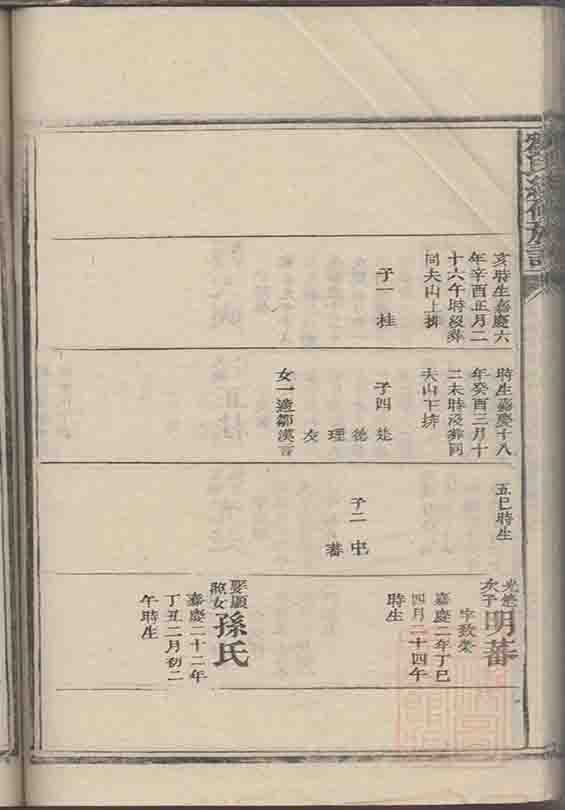 氏續修族譜
亥時生嘉慶六
年辛酉正月二
十六午時沒葬
同夫山上排
子一 桂
時生嘉慶十八
年癸酉三月十
二未時沒葬同
夫山下排
子四
德
理
友
女一適鄒漢言
五巳時生
子二
蕃
次子
明蕃
嘉慶二年丁巳
四月二十四午
時生
娶
女
孫氏
嘉慶二十二年
丁丑二月初二
午時生